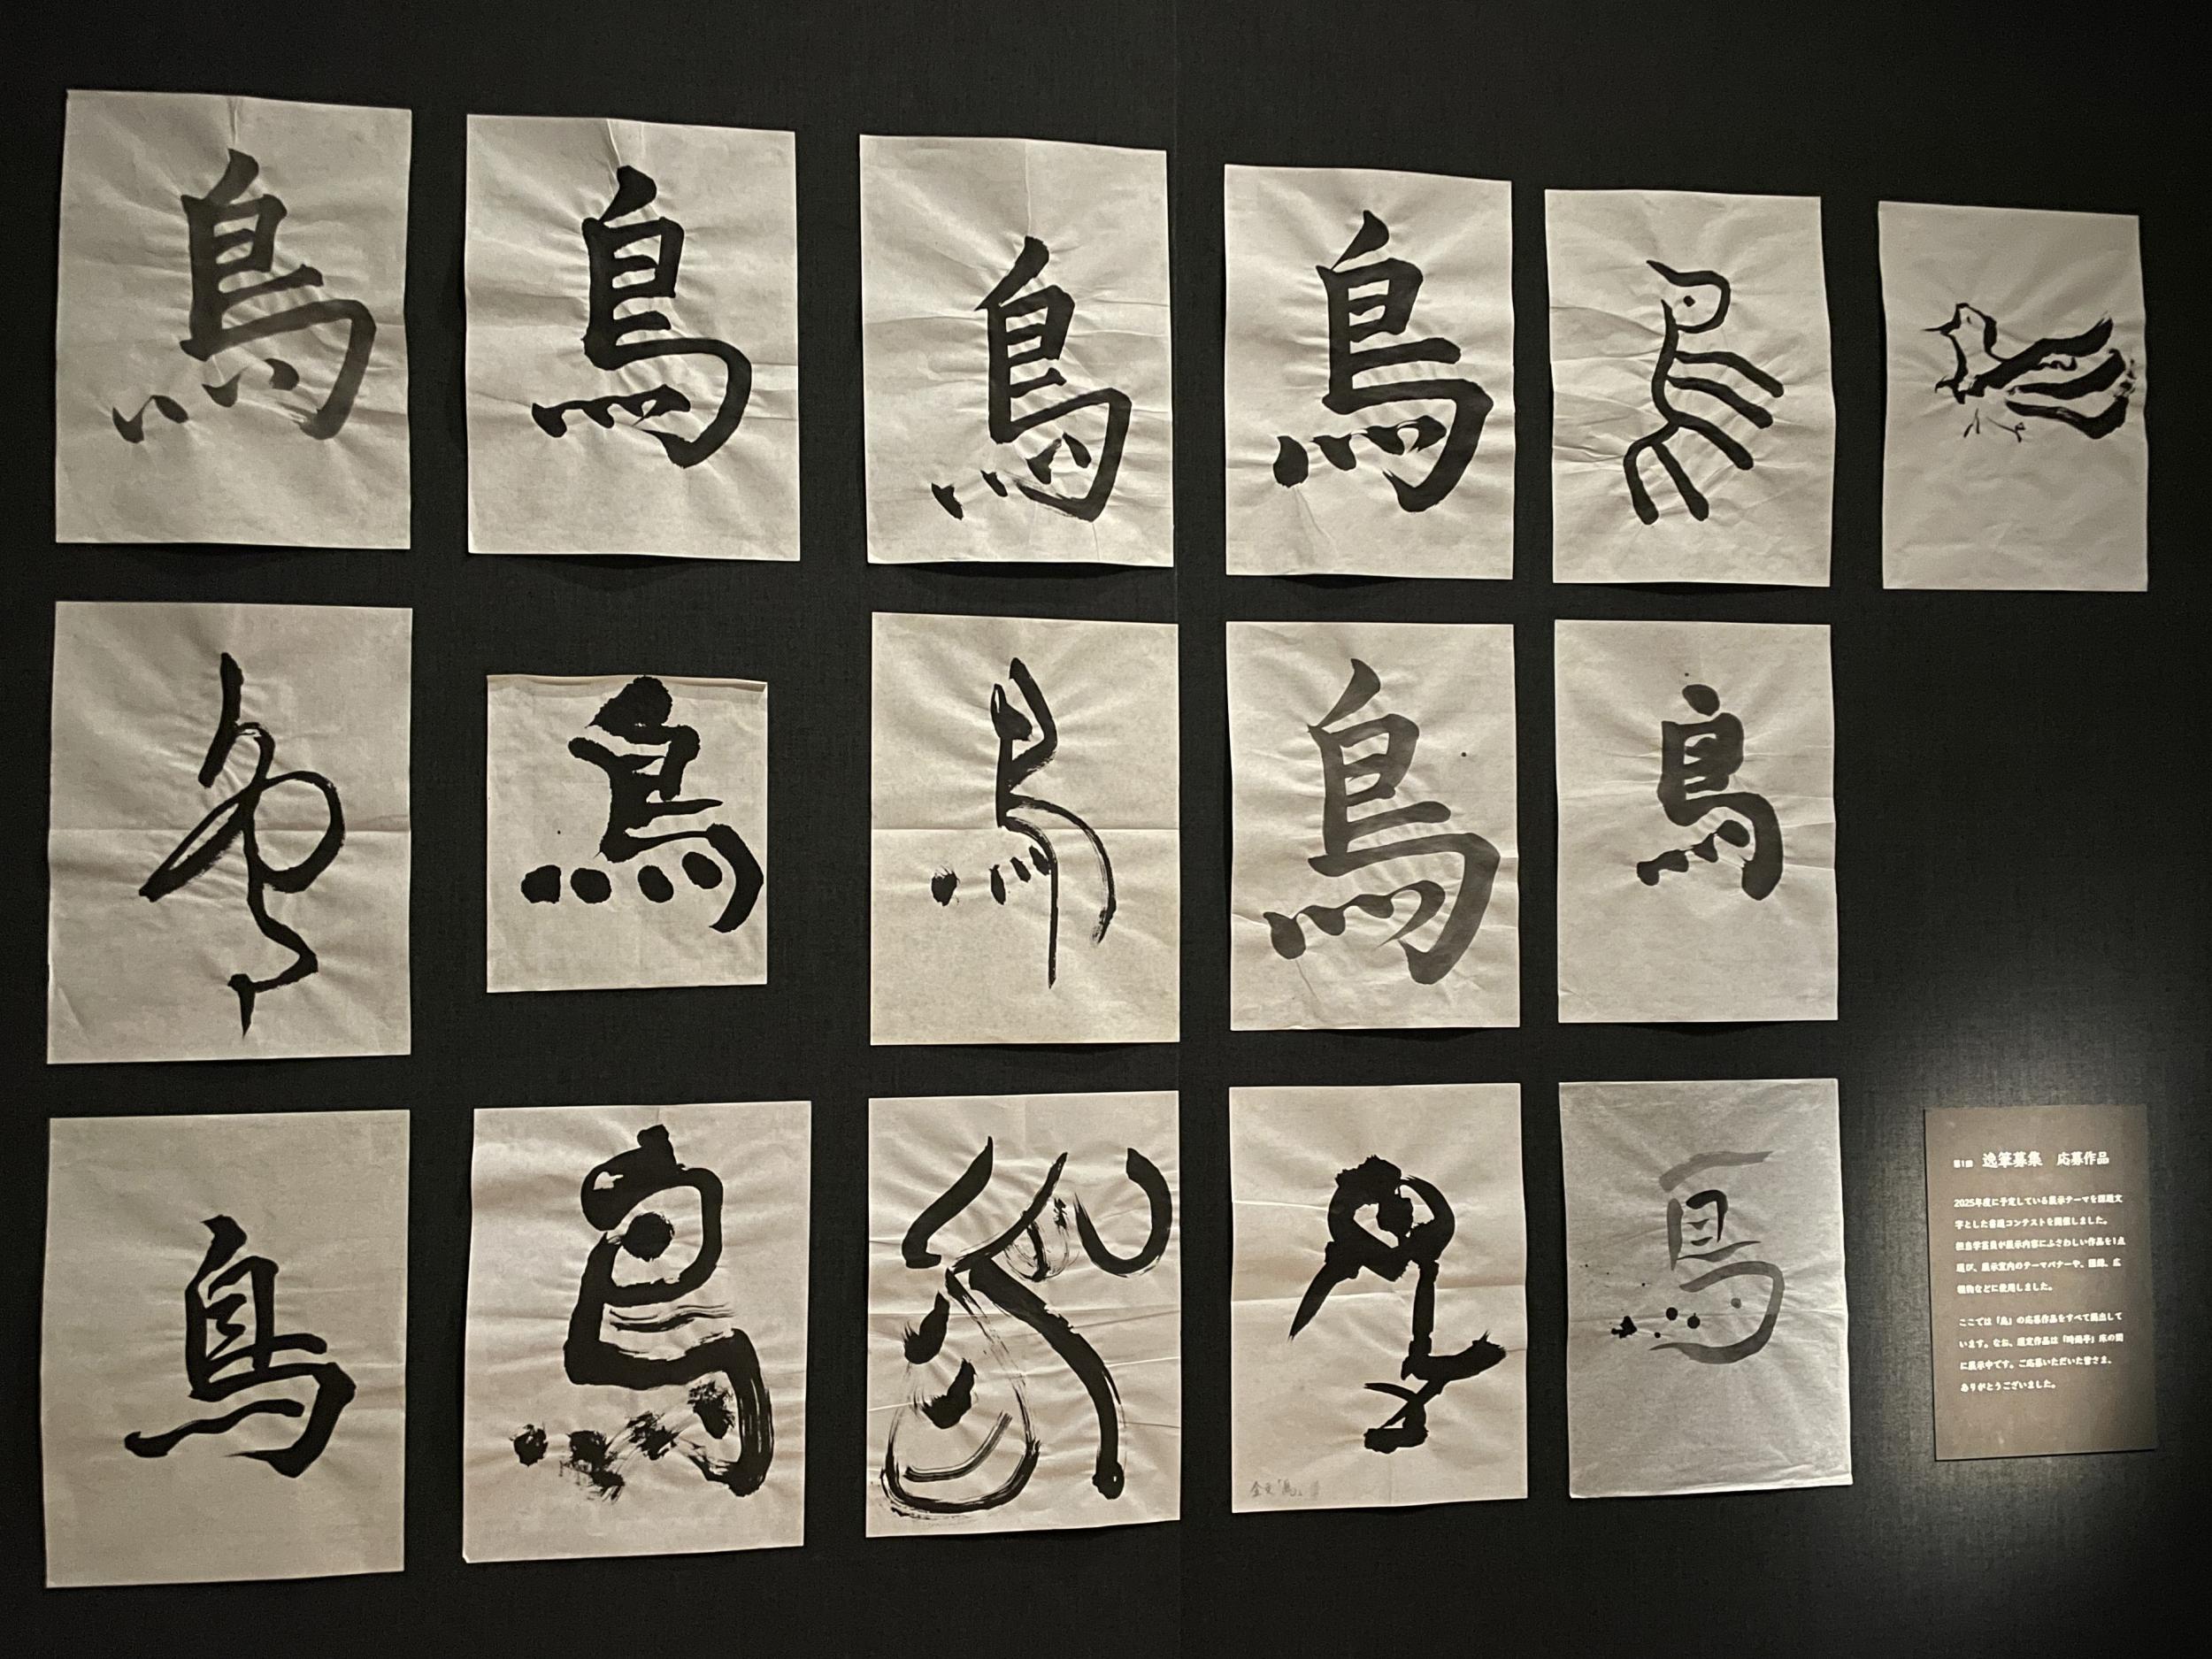 鳥
鳥
鳥
鳥
鳥
鳥
鳥
鳥
鳥
鳥
鳥
鳥
金文「鳥」
第1回 逸筆募集 応募作品
2025年度に予定している展示テーマを課題文
字とした書道コンテストを開催しました。
担当学芸員が展示内容にふさわしい作品を1点
選び、展示室内のテーマバナーや、図録、広
報物などに使用しました。
ここでは「鳥」の応募作品をすべて掲出して
います。なお、選定作品は「時鳥亭」床の間
に展示中です。ご応募いただいた皆さま、
ありがとうございました。